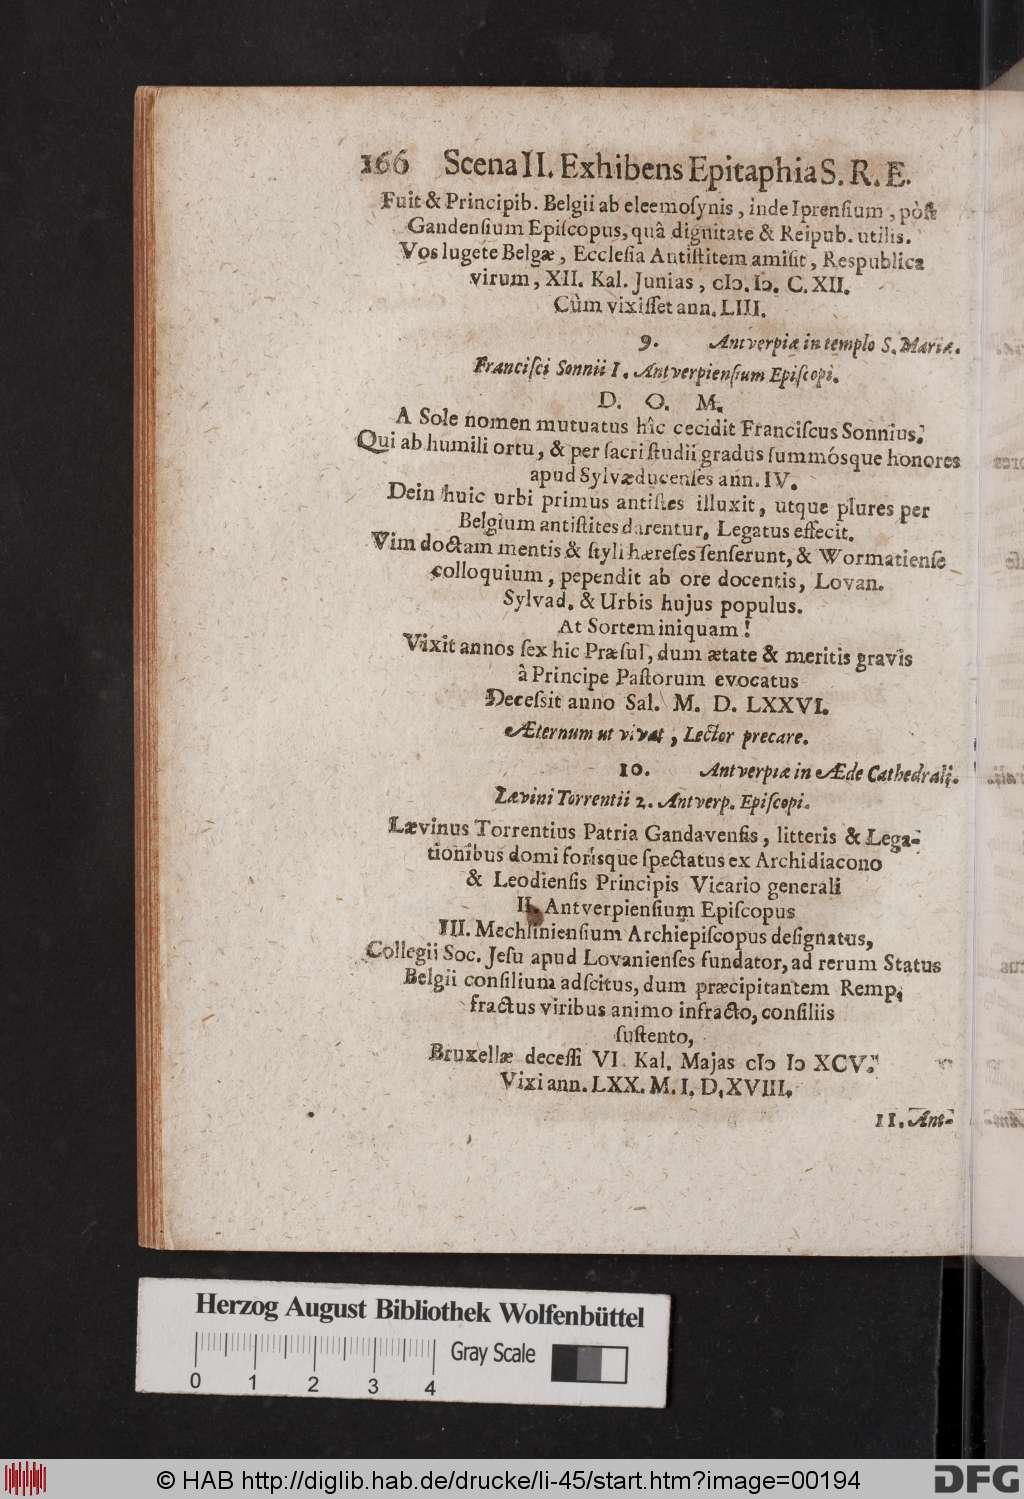 166 Scena II. Exhibens Epitaphia S. R. E.
Fuit & Principib. Belgii ab eleemoſynis, inde Iprenſium, pòſt
Gandenſium Epiſcopus, quâ dignitate & Reipub. utilis.
Vos lugete Belgæ, Eccleſia Antiſtitem amiſit, Respublica
virum, XII. Kal. Junias, cIↄ. Iↄ. C. XII.
Cùm vixiſſet ann. LIII.
9. Antverpiæ in templo S. Mariæ.
Franciſci Sonnii I. Antverpienſium Epiſcopi.
D. O. M.
A Sole nomen mutuatus hîc cecidit Franciſcus Sonnius,
Qui ab humili ortu, & per ſacri ſtudii gradus ſummósque honores
apud Sylvæducenſes ann. IV.
Dein huic urbi primus antiſtes illuxit, utque plures per
Belgium antiſtites darentur, Legatus effecit.
Vim doctam mentis & ſtyli hæreſes ſenſerunt, & Wormatienſe
colloquium, pependit ab ore docentis, Lovan.
Sylvad. & Urbis hujus populus.
At Sortem iniquam!
Vixit annos ſex hic Præſul, dum ætate & meritis gravis
â Principe Paſtorum evocatus
Deceſsit anno Sal. M. D. LXXVI.
Æternum ut vivat, Lector precare.
10. Antverpiæ in Æde Cathedrali.
Lævini Torrentii 2. Antverp. Epiſcopi.
Lævinus Torrentius Patria Gandavenſis, litteris & Lega-
tionibus domi forisque ſpectatus ex Archidiacono
& Leodienſis Principis Vicario generali
II. Antverpienſium Epiſcopus
III. Mechlinienſium Archiepiſcopus deſignatus,
Collegii Soc. Jeſu apud Lovanienſes fundator, ad rerum Status
Belgii conſilium adſcitus, dum præcipitantem Remp.
fractus viribus animo infracto, conſiliis
ſuſtento,
Bruxellæ deceſſi VI. Kal. Majas cIↄ Iↄ XCV.
Vixi ann. LXX. M. I. D. XVIII.
11. Ant-
Herzog August Bibliothek Wolfenbüttel
Gray Scale
0 1 2 3 4
© HAB http://diglib.hab.de/drucke/li-45/start.htm?image=00194
DFG